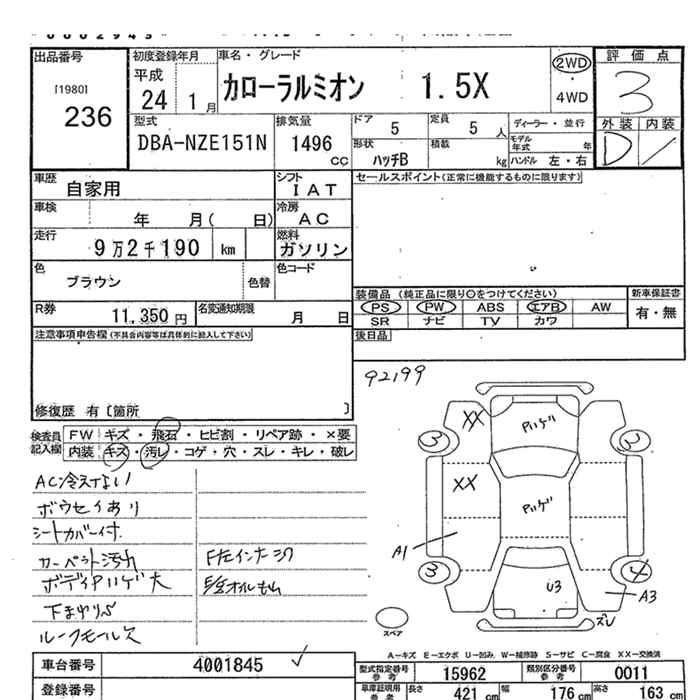 出品番号
[1980]
236
初度登録年月
平成
24 1 月
車名・グレード
カローラルミオン 1.5X
2WD
・
4WD
評価点
3
外装 内装
D
型式
DBA-NZE151N
排気量
1496
cc
ドア 5
定員 5 人
形状
ハッチB
積載
kg
ディーラー・並行
モデル年式 年
ハンドル 左・右
車歴 自家用
シフト
IAT
車検 年 月( 日)
冷房
AC
走行
9万2千190 km
燃料
ガソリン
色
ブラウン
色替
色コード
R券
11,350 円
名変通知期限
月 日
セールスポイント(正常に機能するものに限ります)
装備品 (純正品に限り○をつけてください)
新車保証書
PS PW ABS エアB AW
有・無
SR ナビ TV カワ
後日品
注意事項申告欄(不具合内容等は具体的に記入して下さい)
修復歴 有〔箇所 〕
検査員記入欄
FW キズ・飛石・ヒビ割・リペア跡・×要
内装 キズ・汚レ・コゲ・穴・スレ・キレ・破レ
AC冷えない
ボウセイあり
シートカバー付
カーペット汚れ
ボディPハゲ大
ルーフモールズレ
92199
XX
Pハゲ
3
XX
Pハゲ
A1
3
U3
A3
ズレ
スペア
A-キズ E-エクボ U-凹み W-補修跡 S-サビ C-腐食 XX-交換済
車台番号
4001845
登録番号
型式指定番号
参考
15962
類別区分番号
参考
0011
車庫証明用
参考
長さ 421 cm
幅 176 cm
高さ 163 cm